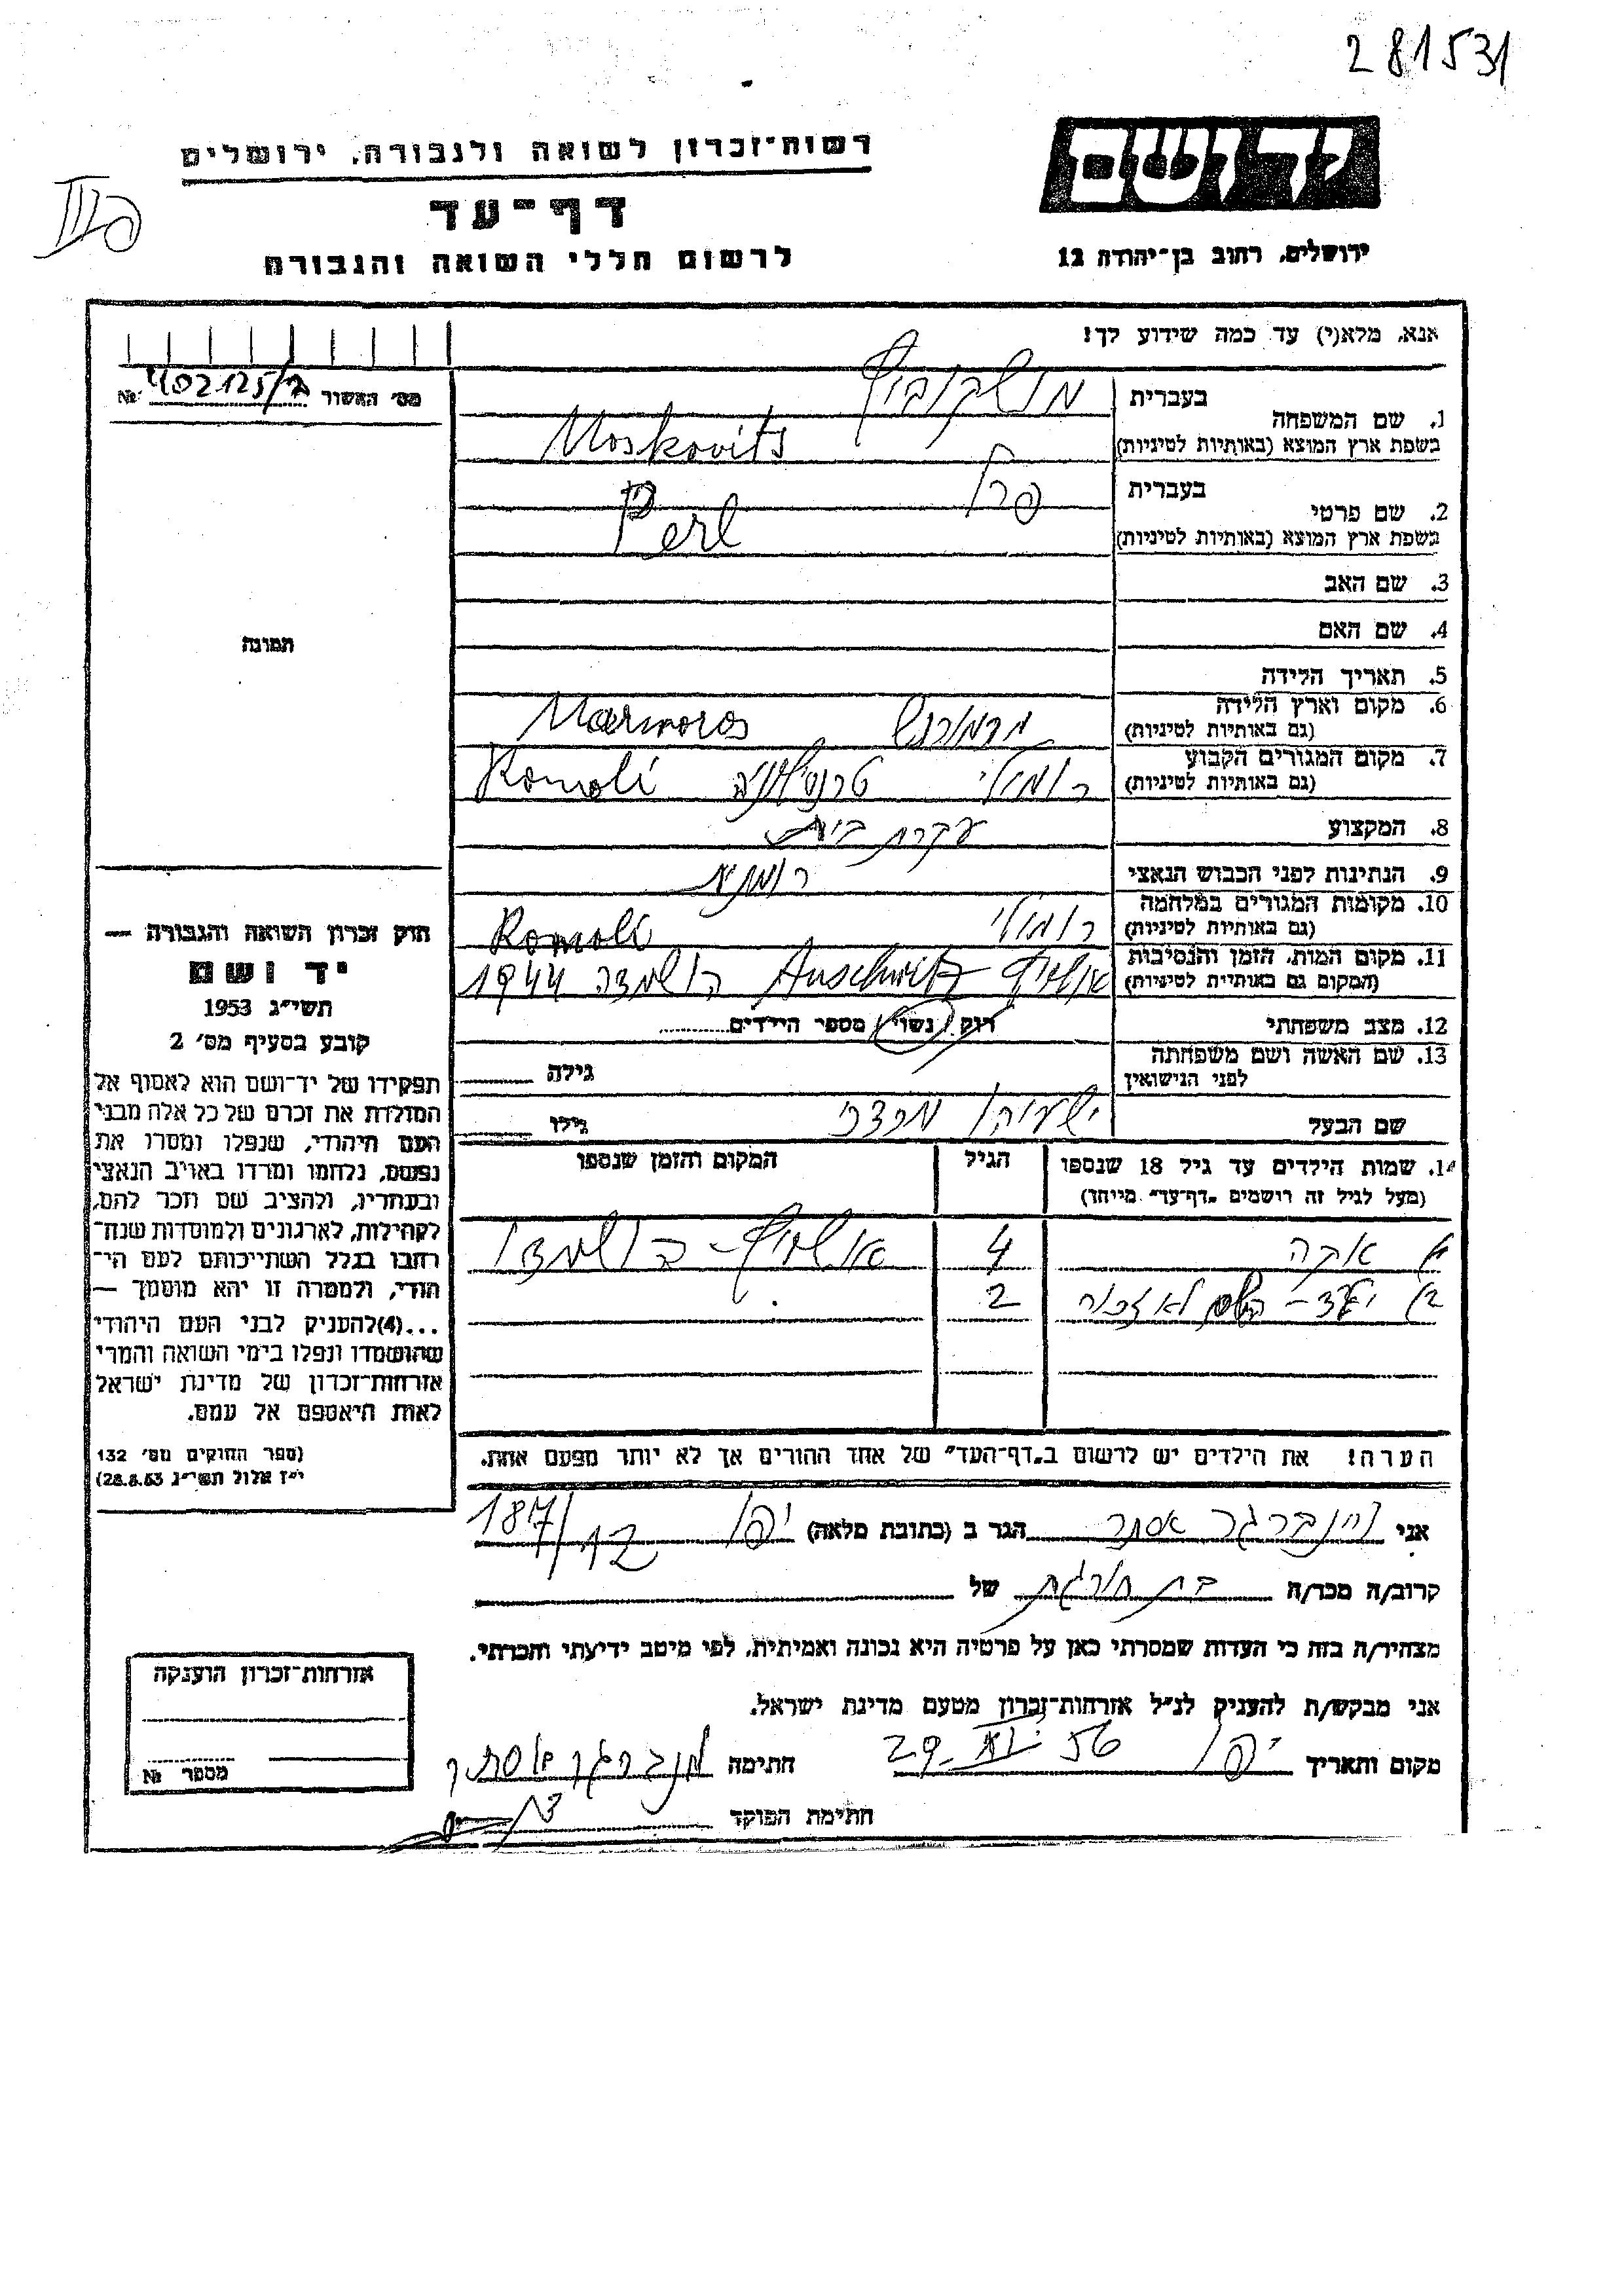 281531
רשות־זכרון לשואה ולגבורה, ירושלים
יד ושם
דף־עד
לרשום חללי השואה והגבורה
ירושלים, רחוב בן־יהודה 12
אנא, מלא(י) עד כמה שידוע לך!
מס׳ האשור № 402125/ב
1. שם המשפחה
בעברית מושקוביץ
בשפת ארץ המוצא (באותיות לטיניות) Moskovits
2. שם פרטי
בעברית פרל
בשפת ארץ המוצא (באותיות לטיניות) Perl
3. שם האב
4. שם האם
תמונה
5. תאריך הלידה
6. מקום וארץ הלידה
(גם באותיות לטיניות) מרמורוש Marmoros
7. מקום המגורים הקבוע
(גם באותיות לטיניות) רומולי טרנסילוניה Romoli
8. המקצוע עקרת בית
9. הנתינות לפני הכבוש הנאצי רומניה
10. מקומות המגורים במלחמה
(גם באותיות לטיניות) רומולי Romoli
11. מקום המות, הזמן והנסיבות
(המקום גם באותיות לטיניות) אושויץ Auschwitz הושמדה 1944
12. מצב משפחתי רווק / נשוי / מספר הילדים
13. שם האשה ושם משפחתה
לפני הנישואין גילה
שם הבעל ישעיהו מרדכי גילו
14. שמות הילדים עד גיל 18 שנספו הגיל המקום והזמן שנספו
(מעל לגיל זה רושמים „דף־עד” מיוחד)
4 אושויץ - הושמדו
2
הערה! את הילדים יש לרשום ב„דף־העד” של אחד ההורים אך לא יותר מפעם אחת.
חוק זכרון השואה והגבורה —
יד ושם
תשי״ג 1953
קובע בסעיף מס׳ 2
תפקידו של יד־ושם הוא לאסוף אל
המולדת את זכרם של כל אלה מבני
העם היהודי, שנפלו ומסרו את
נפשם, נלחמו ומרדו באויב הנאצי
ובעוזריו, ולהציב שם וזכר להם,
לקהילות, לארגונים ולמוסדות שנח־
רבו בגלל השתייכותם לעם הי־
הודי, ולמטרה זו יהא מוסמך —
...(4)להעניק לבני העם היהודי
שהושמדו ונפלו בימי השואה והמרי
אזרחות־זכרון של מדינת ישראל
לאות היאספם אל עמם.
(ספר החוקים מס׳ 132
י״ז אלול תשי״ג 28.8.53)
אני ויינברגר אסתר הגר ב (כתובת מלאה) יפו
קרוב/ה מכר/ה בת חורגת של
מצהיר/ה בזה כי העדות שמסרתי כאן על פרטיה היא נכונה ואמיתית, לפי מיטב ידיעתי והכרתי.
אני מבקש/ת להעניק לנ״ל אזרחות־זכרון מטעם מדינת ישראל.
מקום ותאריך יפו 29.XI.56 חתימה וינברגר אסתר
חתימת הפוקד
אזרחות־זכרון הוענקה
מספר №